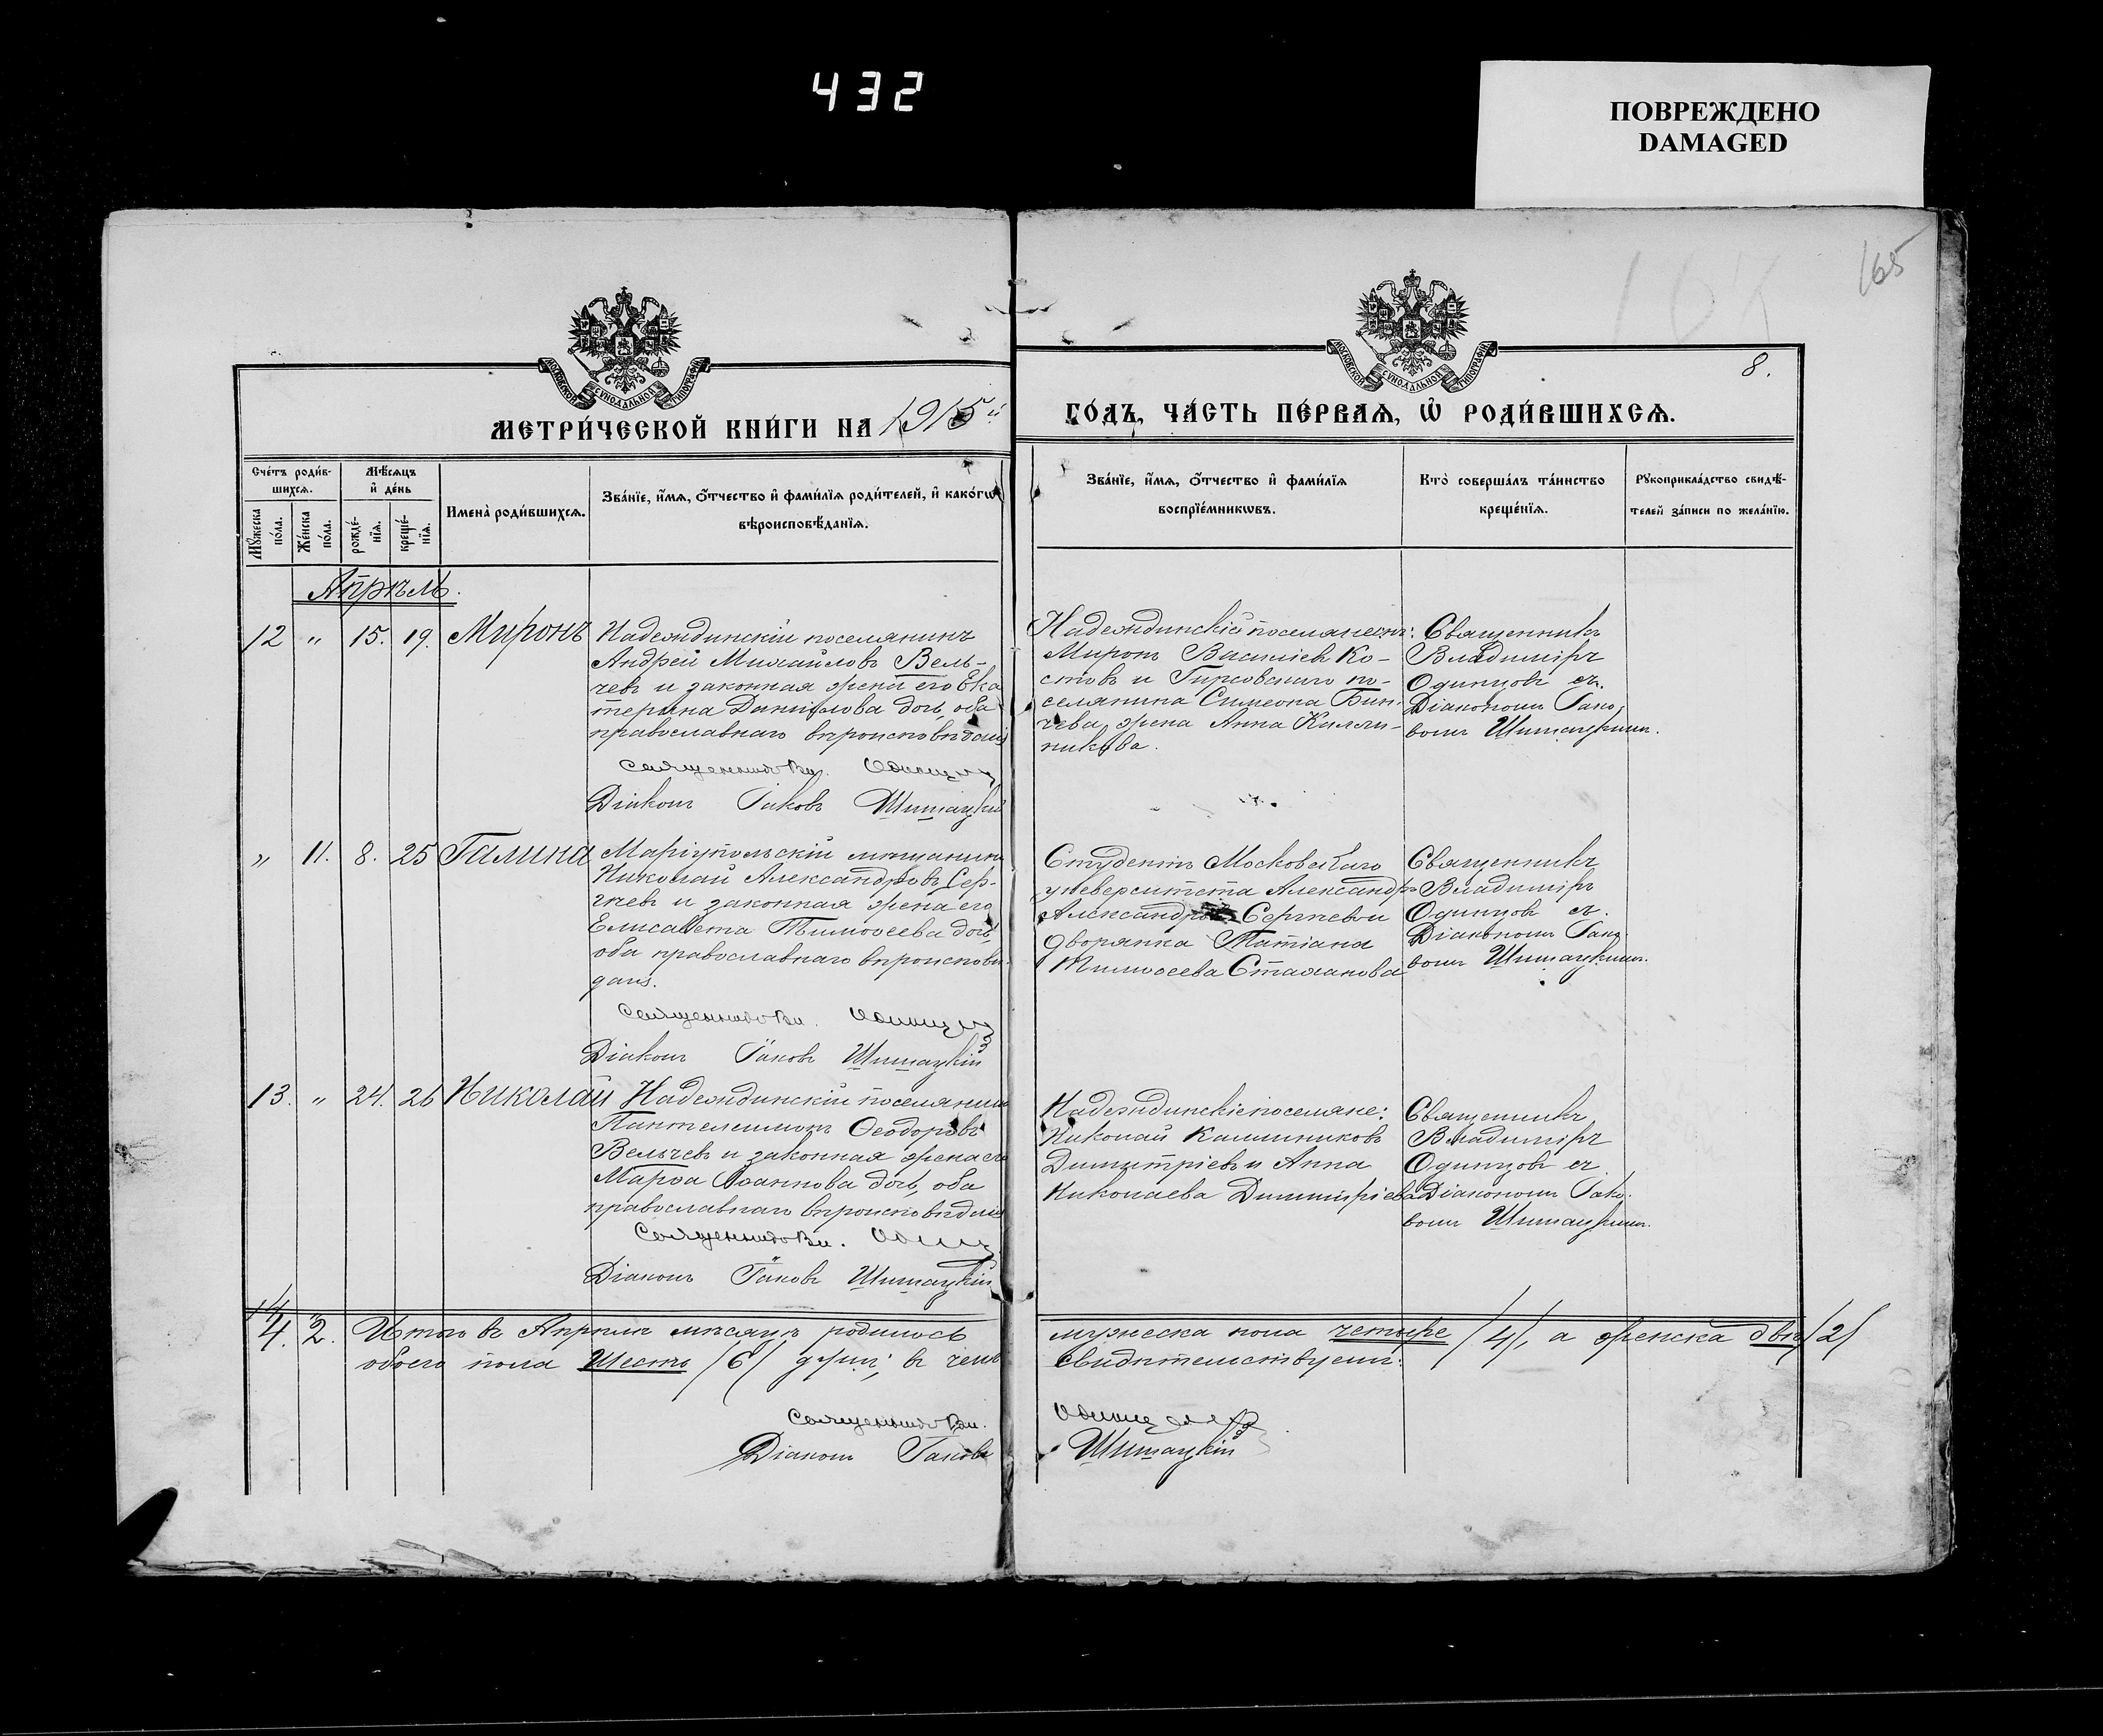 432
ПОВРЕЖДЕНО
DAMAGED
165
8.
МЕТРИ́ЧЕСКОЙ КНИ́ГИ НА 1915й
ГО́ДЪ, ЧА́СТЬ ПЕ́РВАѦ, Ѽ РОДИ́ВШИХСѦ.
Сче́тъ роди́в-
шихсѧ.
Мꙋ́жеска
по́ла.
Же́нска
по́ла.
Мѣ́сѧцъ
и҆ де́нь
рожде́-
нїѧ.
креще́-
нїѧ.
Имена̀ роди́вшихсѧ.
Зва́нїе, и҆́мѧ, ѻ҆́тчество и҆ фами́лїѧ роди́телей, и҆ како́гѡ
вѣроисповѣ́данїѧ.
Зва́нїе, и҆́мѧ, ѻ҆́тчество и҆ фами́лїѧ
воспрїе́мникѡвъ.
Кто̀ соверша́лъ та́инство
креще́нїѧ.
Рꙋкоприкла́дство свидѣ́-
телей за́писи по жела́нїю.
Апрѣль.
12 " 15. 19. Миронъ
Надеждинскій поселянинъ
Андрей Михайловъ Вель-
чевъ и законная жена его Ека
терина Данилова дочь, оба
православнаго вѣроисповѣданія
Священникъ Вл. Одинцовъ
Діаконъ Іаковъ Шишацкій
Надеждинскій поселянинъ:
Миронъ Василіевъ Ко-
стовъ и Гирсовскаго по-
селянина Симеона Бин-
чева жена Анна Калли-
никова.
Священникъ
Владиміръ
Одинцовъ съ
Діакономъ Іако-
вомъ Шишацкимъ.
" 11. 8. 25 Галина
Маріупольскій мѣщанинъ
Николай Александровъ Сер-
гѣевъ и законная жена его
Елисавета Тимоѳеева дочь,
оба православнаго вѣроисповѣ-
данія.
Священникъ Вл. Одинцовъ
Діаконъ Іаковъ Шишацкій
Студентъ Московскаго
университета Александръ
Александровъ Сергѣевъ и
дворянка Татіана
Тимоѳеева Стаматова
Священникъ
Владиміръ
Одинцовъ съ
Діакономъ Іако-
вомъ Шишацкимъ.
13. " 24. 26 Николай
Надеждинскій поселянинъ
Пантелеимонъ Ѳеодоровъ
Вельчевъ и законная жена его
Марѳа Іоаннова дочь, оба
православнаго вѣроисповѣданія
Священникъ Вл. Одинцовъ
Діаконъ Іаковъ Шишацкій
Надеждинскіе поселяне:
Николай Каллиниковъ
Димитріевъ и Анна
Николаева Димитріева
Священникъ
Владиміръ
Одинцовъ съ
Діакономъ Іако-
вомъ Шишацкимъ.
4. 2. Итого въ Апрѣлѣ мѣсяцѣ родилось
обоего пола шесть /6/ душъ, въ чемъ
мужеска пола четыре /4/, а женска двѣ /2/
свидѣтельствуемъ:
Священникъ Вл. Одинцовъ
Діаконъ Іаковъ Шишацкій